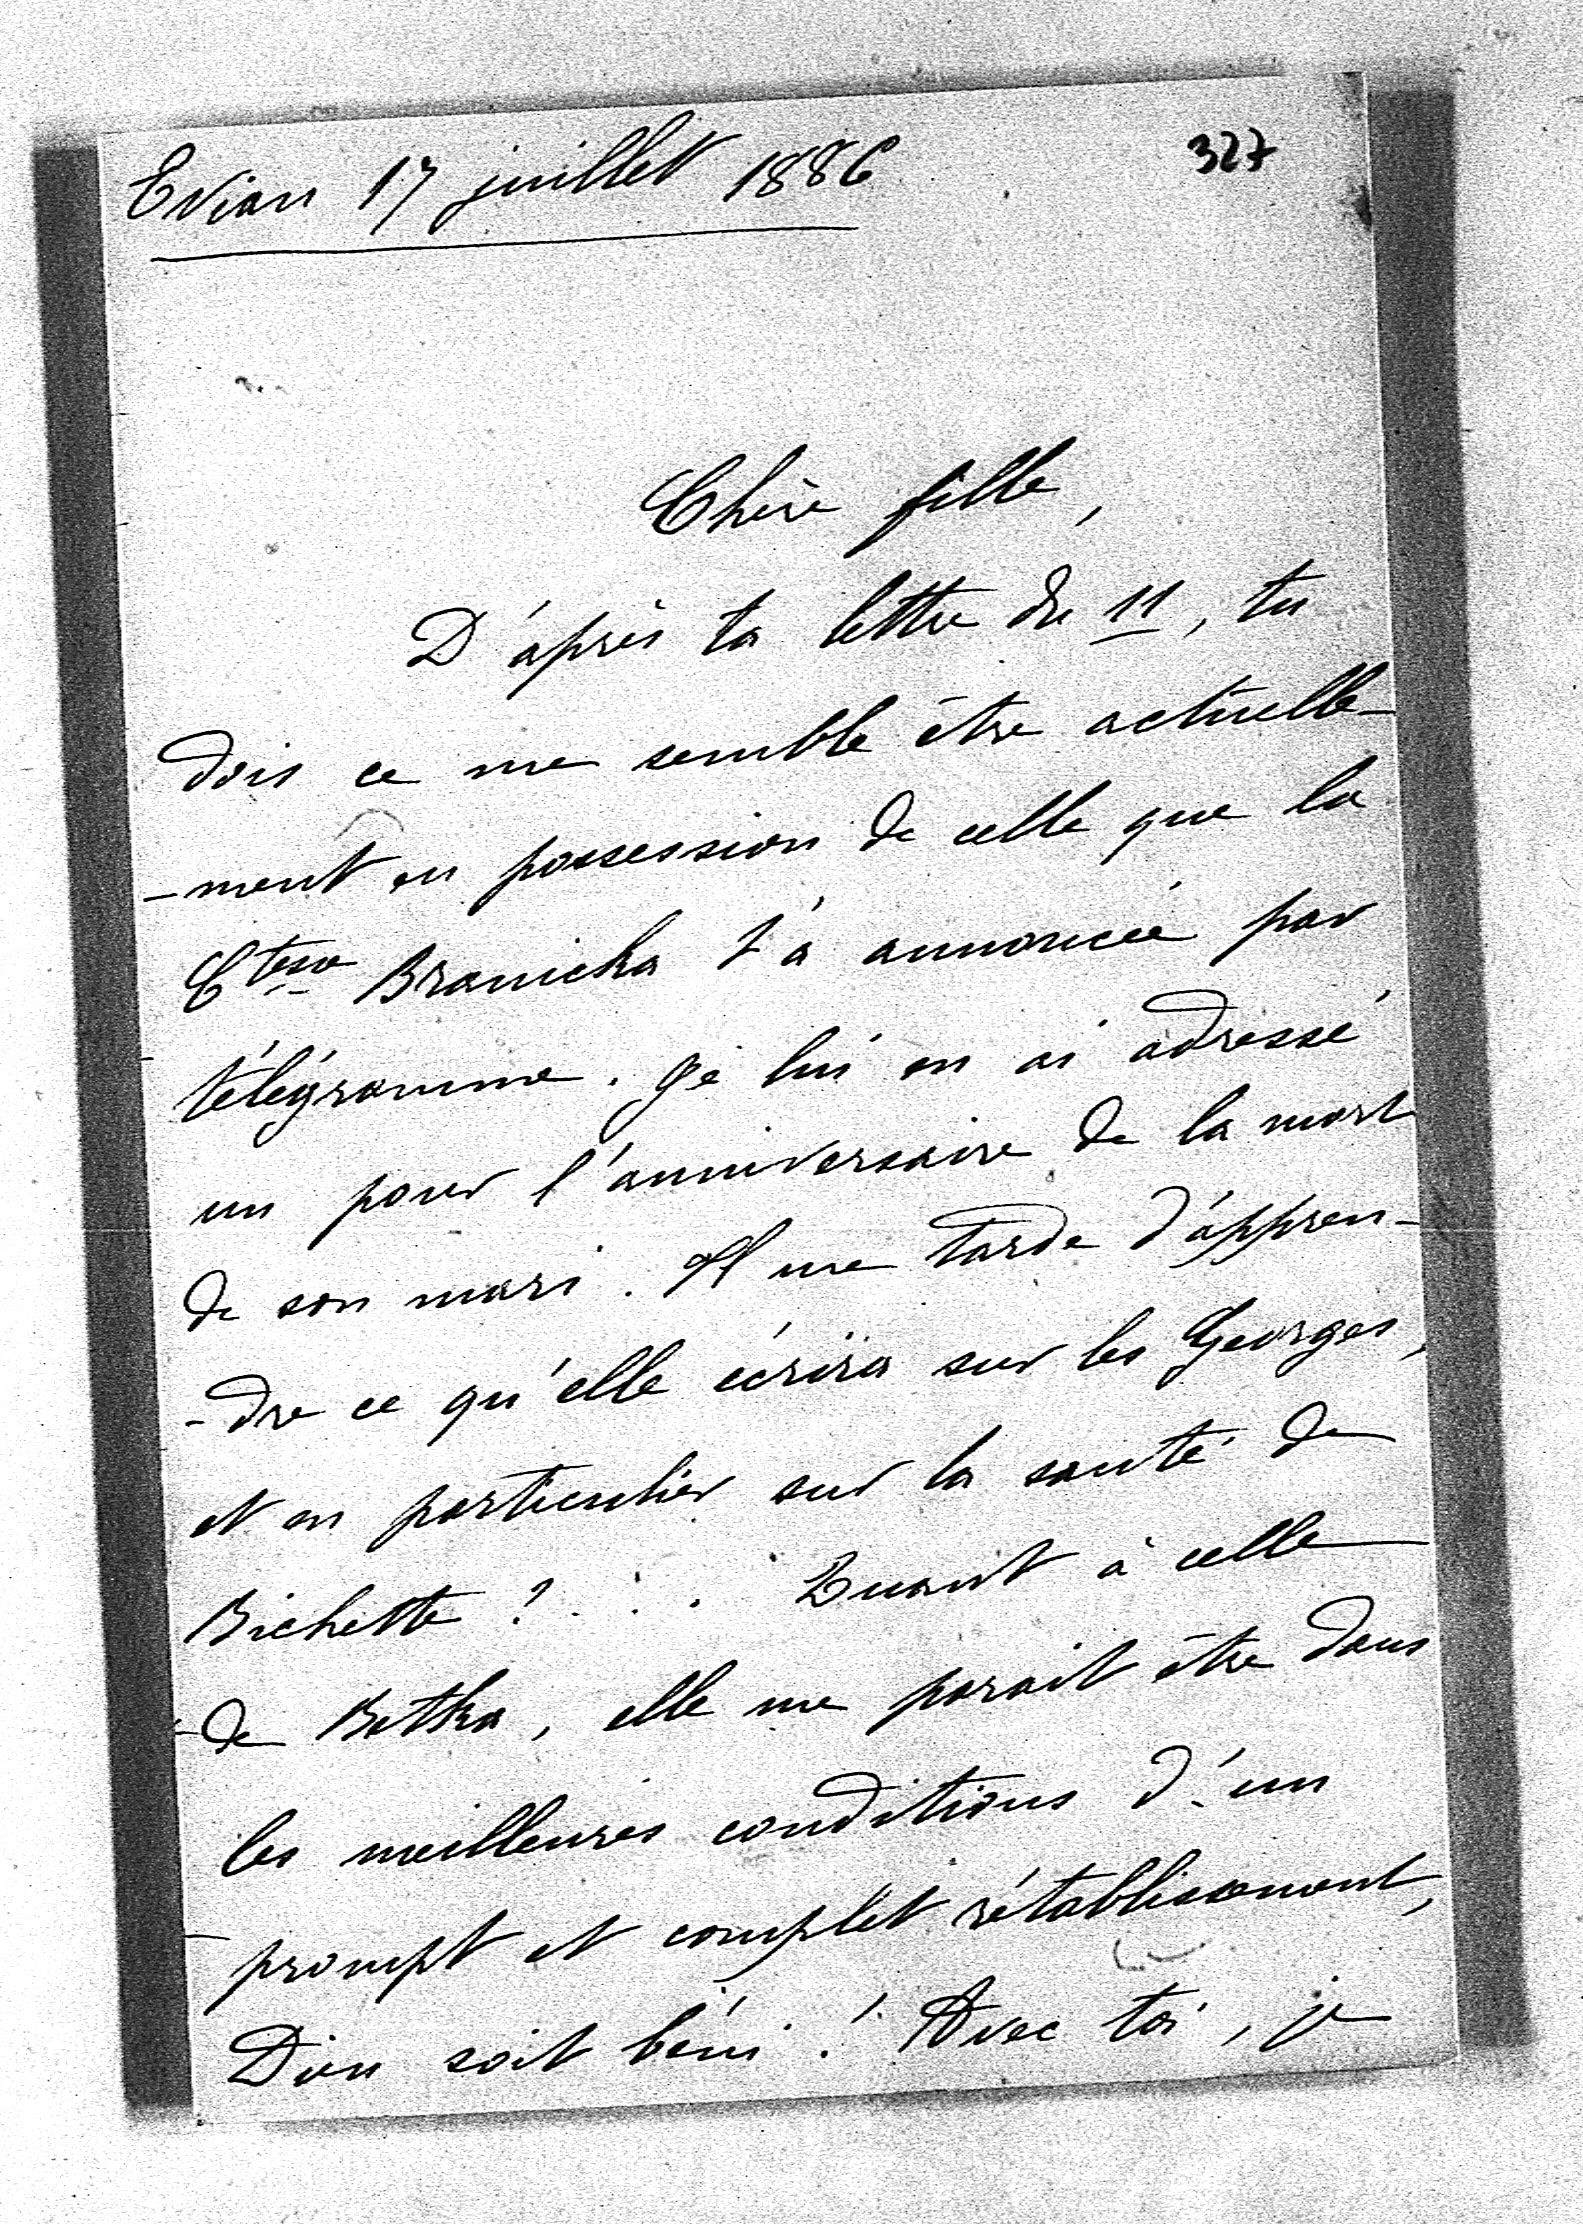 Evian 17 juillet 1886
327
Chère fille,
D'après ta lettre du 11, tu
dois ce me semble être actuelle-
-ment en possession de celle que la
Ctesse Branicka t'a annoncée par
télégramme. Je lui en ai adressé
un pour l'anniversaire de la mort
de son mari. Il me tarde d'appren-
-dre ce qu'elle écrira sur les Georges,
et en particulier sur la santé de
Bichette ? . . . Quant à celle
-de Betka, elle me parait être dans
les meilleures conditions d'un
prompt et complèt rétablissement,
Dieu soit béni ! Avec toi, je